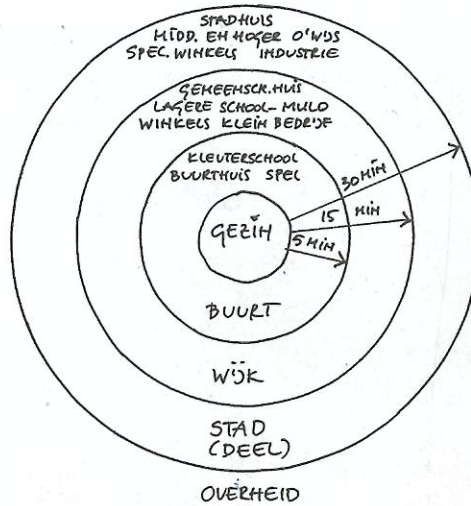 STADHUIS
MIDD. EN HOGER O'WIJS
SPEC. WINKELS INDUSTRIE
GEMEENSCH. HUIS
LAGERE SCHOOL-MULO
WINKELS KLEIN BEDRIJF
KLEUTERSCHOOL
BUURTHUIS SPEL
30 MIN
15 MIN
GEZIN
5 MIN
BUURT
WIJK
STAD
(DEEL)
OVERHEID